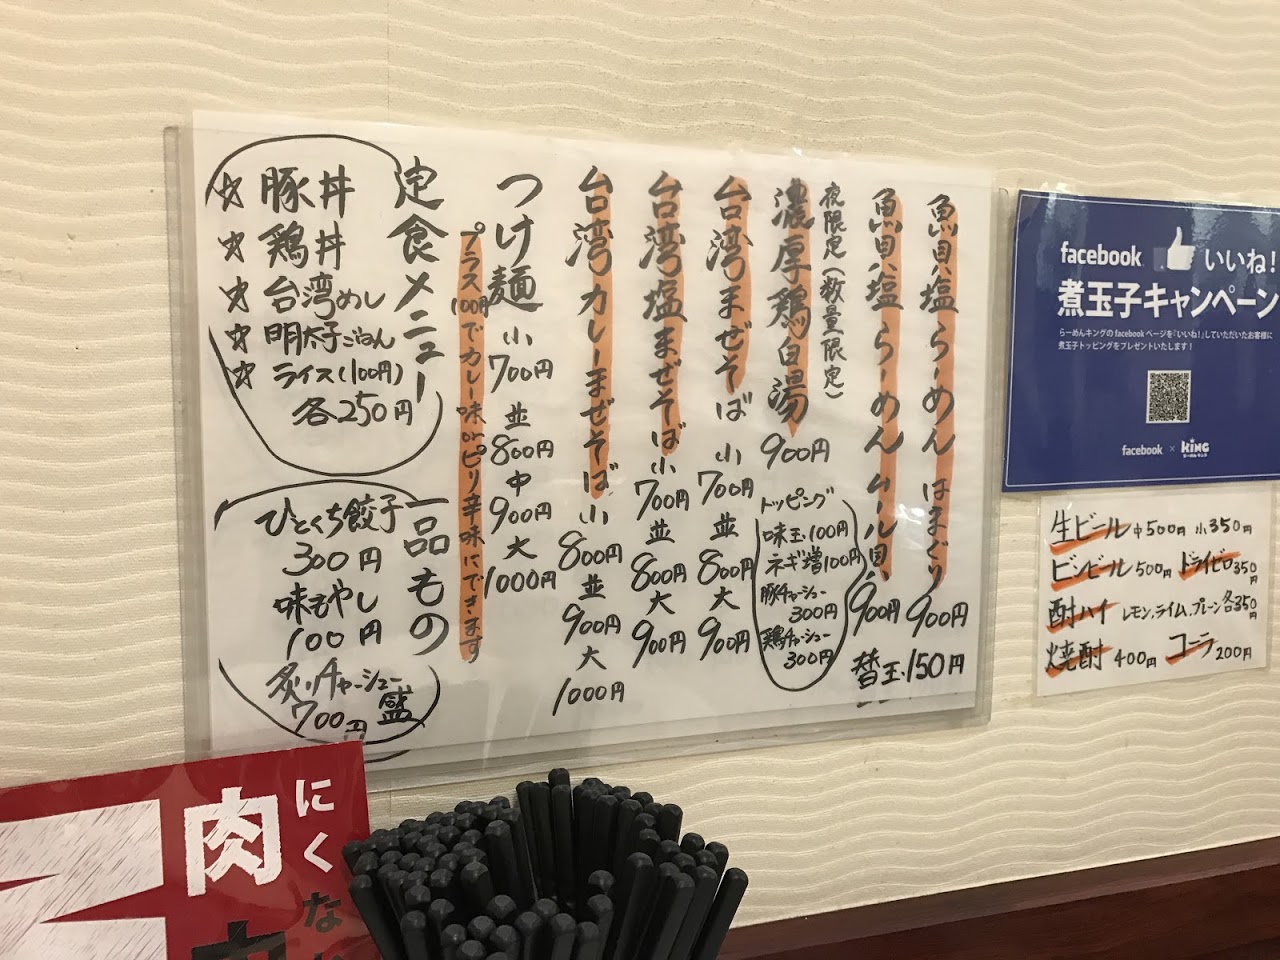 魚貝塩らーめん はまぐり 900円
魚貝塩らーめん ムール貝 900円
替玉 150円
夜限定(数量限定)
濃厚鶏白湯 900円
トッピング
味玉 100円
ネギ増 100円
豚チャーシュー
300円
鶏チャーシュー
300円
台湾まぜそば 小 700円 並 800円 大 900円
台湾塩まぜそば 小 700円 並 800円 大 900円
台湾カレーまぜそば 小 800円 並 900円 大 1000円
つけ麺 小 700円 並 800円 中 900円 大 1000円
プラス100円でカレー味orピリ辛味にできます
定食メニュー
☆ 豚丼
☆ 鶏丼
☆ 台湾めし
☆ 明太子ごはん
☆ ライス(100円)
各250円
一品もの
ひとくち餃子
300円
味もやし
100円
炙りチャーシュー盛
700円
facebook いいね!
煮玉子キャンペーン
らーめんキングのfacebookページを「いいね!」していただいたお客様に
煮玉子トッピングをプレゼントいたします!
facebook × KING
らーめんキング
生ビール 中500円 小350円
ビンビール 500円 ドライゼロ 350円
酎ハイ レモン、ライム、プレーン 各350円
焼酎 400円 コーラ 200円
にくな
肉